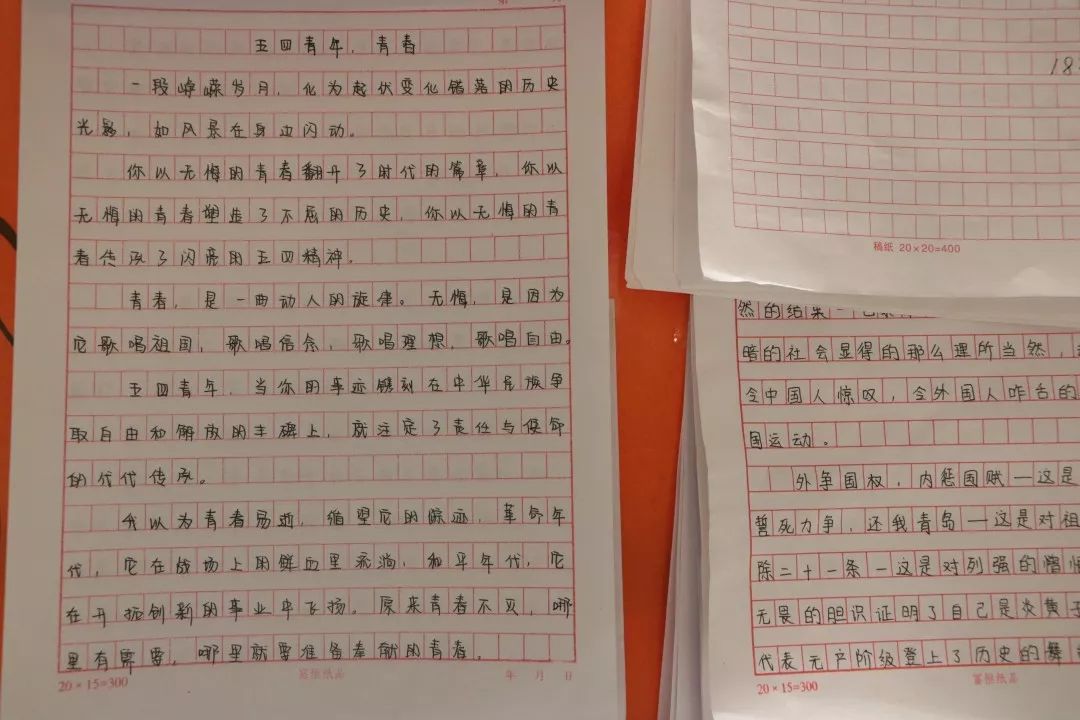 五四青年，青春
一段峥嵘岁月，化为起伏变化错落的历史
光影，如风景在身边闪动。
你以无悔的青春翻开了时代的篇章，你以
无悔的青春塑造了不屈的历史，你以无悔的青
春传承了闪亮的五四精神。
青春，是一曲动人的旋律。无悔，是因为
它歌唱祖国，歌唱信念，歌唱理想，歌唱自由。
五四青年，当你的事迹镌刻在中华民族争
取自由和解放的丰碑上，就注定了责任与使命
的代代传承。
我以为青春易逝，循望它的踪迹，革命年
代，它在战场上用鲜血里流淌，和平年代，它
在开拓创新的事业中飞扬。原来青春不灭，哪
里有需要，哪里就要准备奉献的青春。
20×15=300
年 月 日
稿纸 20×20=400
然的结果一
暗的社会显得的那么理所当然，
令中国人惊叹，令外国人咋舌的
国运动。
外争国权，内惩国贼—这是
誓死力争，还我青岛—这是对祖
除二十一条—这是对列强的憎
无畏的胆识证明了自己是炎黄子
代表无产阶级登上了历史的舞
20×15=300